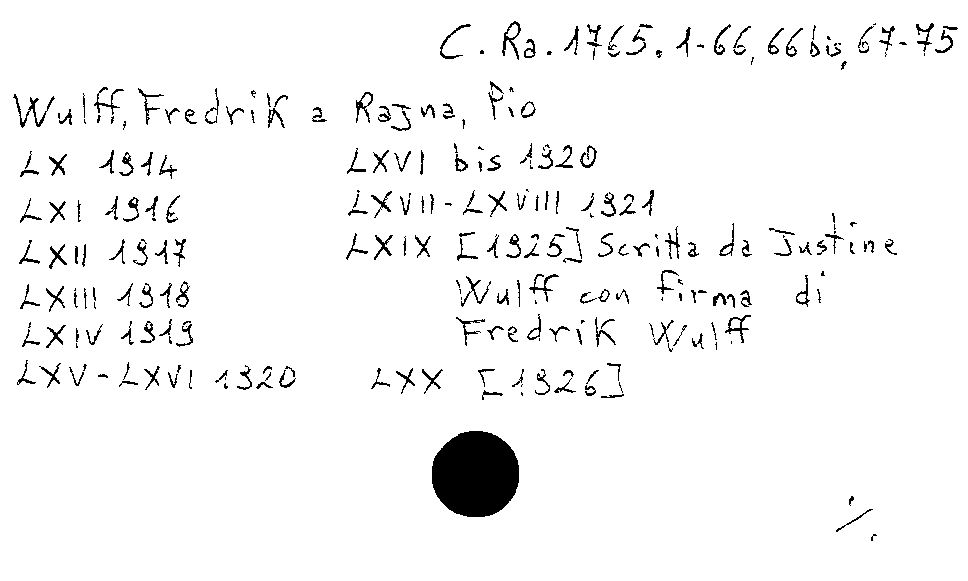 C. Ra. 1765. 1-66, 66 bis, 67-75
Wulff, Fredrik a Rajna, Pio
LX 1914
LXI 1916
LXII 1917
LXIII 1918
LXIV 1919
LXV-LXVI 1920
LXVI bis 1920
LXVII-LXVIII 1921
LXIX [1925] Scritta da Justine
Wulff con firma di
Fredrik Wulff
LXX [1926]
./.